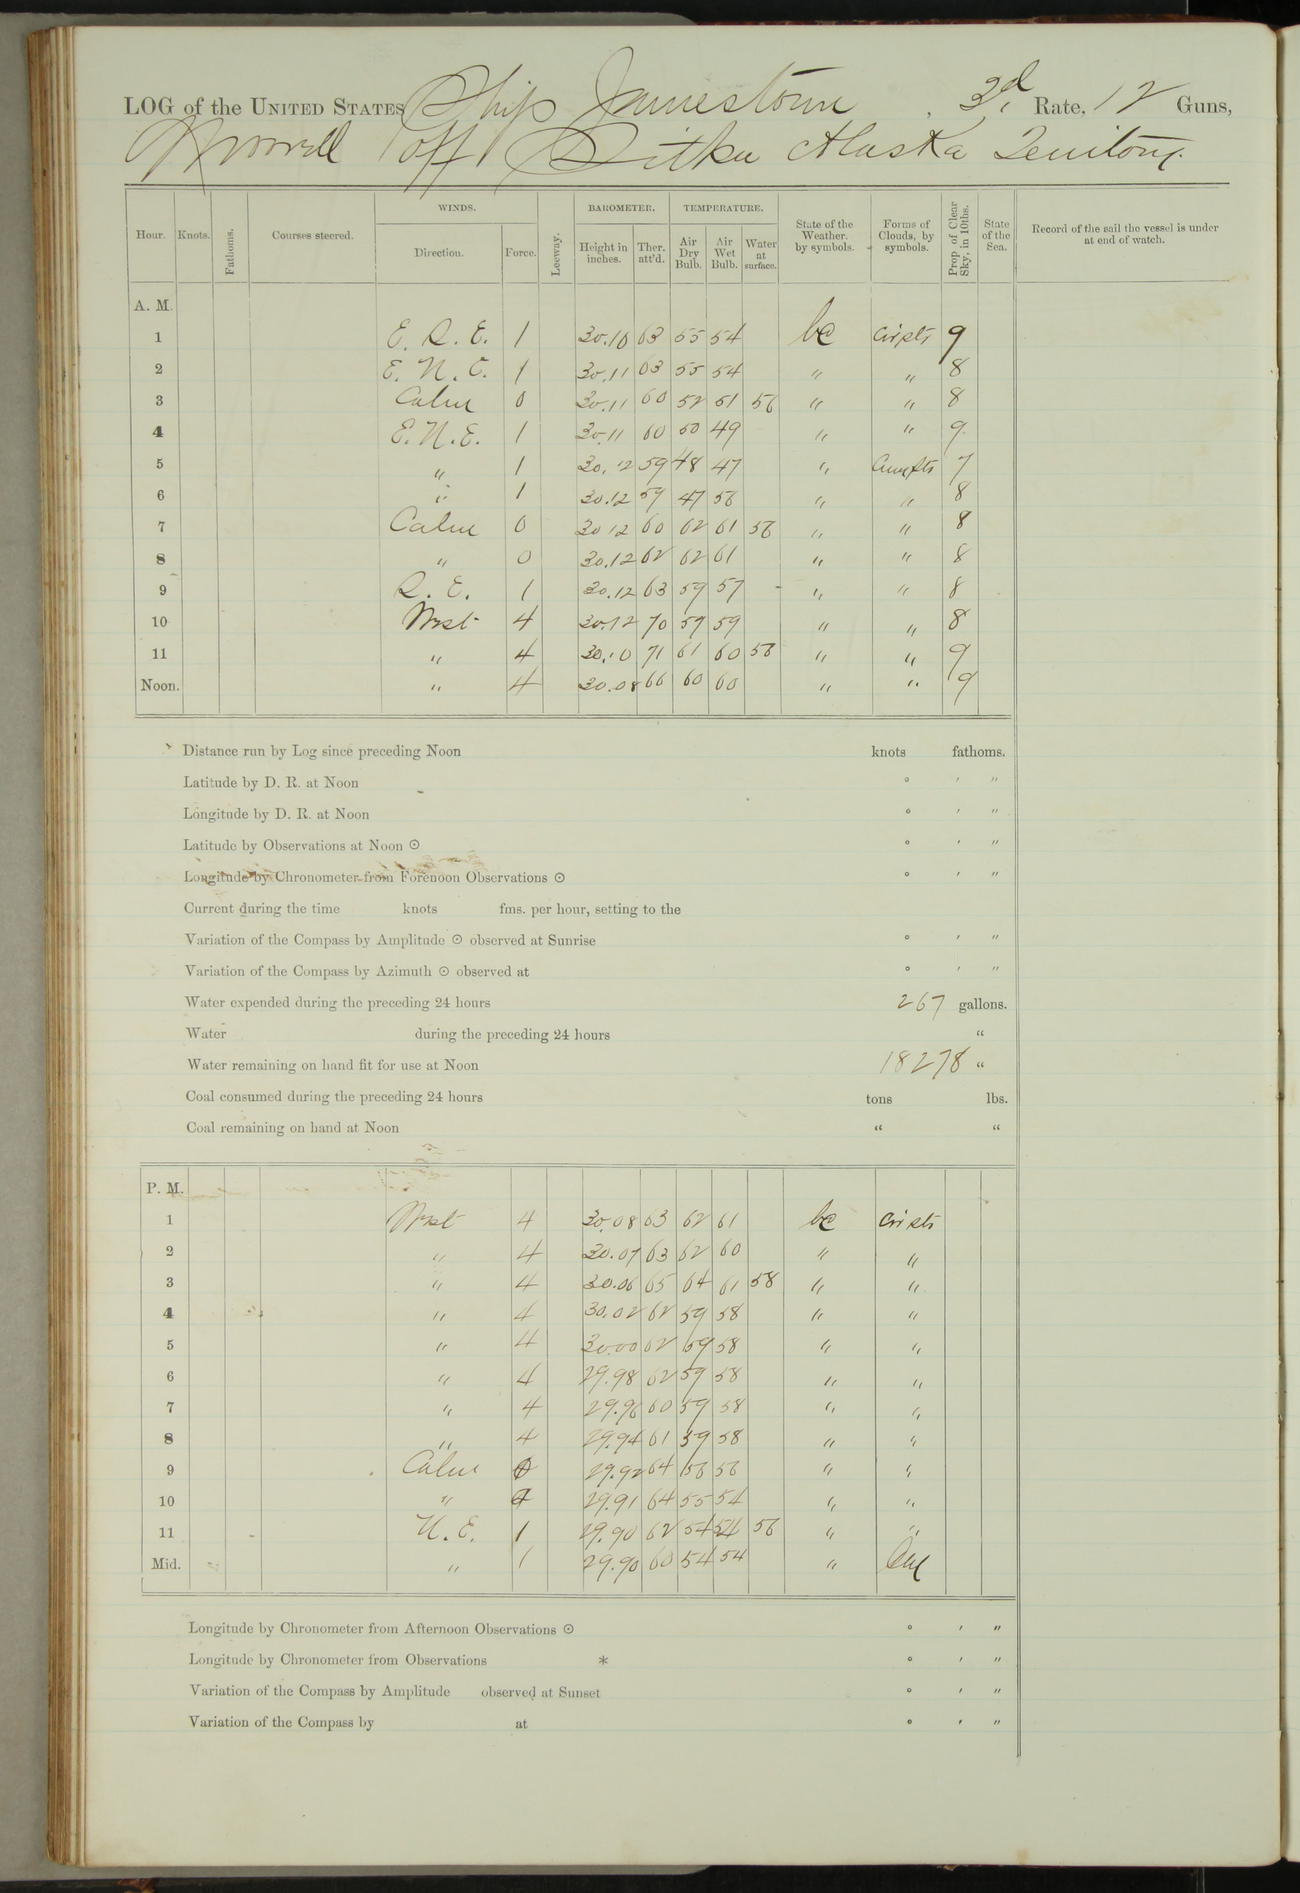 LOG of the UNITED STATES Ship Jamestown, 3d. Rate, 12 Guns,
off Sitka Alaska Territory.
Hour. Knots. Fathoms. Courses steered. WINDS. Direction. Force. Leeway. BAROMETER. Height in inches. Ther. att'd. TEMPERATURE. Air Dry Bulb. Air Wet Bulb. Water at surface. State of the Weather. by symbols. Forms of Clouds, by symbols. Prop of Clear Sky, in 10ths. State of the Sea. Record of the sail the vessel is under at end of watch.
A. M.
1 E. S. E. 1 30.10 63 55 54 bc 9
2 E. N. E. 1 30.11 63 55 54 " " 8
3 Calm 0 30.11 60 52 51 56 " " 8
4 E. N. E. 1 30.11 60 50 49 " " 9
5 " 1 30.12 59 48 47 " 7
6 " 1 30.12 59 47 56 " " 8
7 Calm 0 30 12 60 62 61 56 " " 8
8 " 0 30.12 62 62 61 " " 8
9 S. E. 1 30.12 63 59 57 " " 8
10 West 4 30.12 70 59 59 " " 8
11 " 4 30.10 71 61 60 58 " " 9
Noon. " 4 30.08 66 60 60 " " 9
Distance run by Log since preceding Noon knots fathoms.
Latitude by D. R. at Noon ° ′ ″
Longitude by D. R. at Noon ° ′ ″
Latitude by Observations at Noon ⊙ ° ′ ″
Longitude by Chronometer from Forenoon Observations ⊙ ° ′ ″
Current during the time knots fms. per hour, setting to the
Variation of the Compass by Amplitude ⊙ observed at Sunrise ° ′ ″
Variation of the Compass by Azimuth ⊙ observed at ° ′ ″
Water expended during the preceding 24 hours 267 gallons.
Water during the preceding 24 hours "
Water remaining on hand fit for use at Noon 18278 "
Coal consumed during the preceding 24 hours tons lbs.
Coal remaining on hand at Noon " "
P. M.
1 West 4 30.08 63 62 61 bc
2 " 4 30.07 63 62 60 " "
3 " 4 30.06 65 64 61 58 " "
4 " 4 30.02 62 59 58 " "
5 " 4 30.00 62 59 58 " "
6 " 4 29.98 62 59 58 " "
7 " 4 29.96 60 59 58 " "
8 " 4 29.94 61 59 58 " "
9 Calm 0 29.92 64 56 56 " "
10 " 0 29.91 64 55 54 " "
11 N. E. 1 29.90 62 54 54 56 " "
Mid. " 1 29.90 60 54 54 "
Longitude by Chronometer from Afternoon Observations ⊙ ° ′ ″
Longitude by Chronometer from Observations * ° ′ ″
Variation of the Compass by Amplitude observed at Sunset ° ′ ″
Variation of the Compass by at ° ′ ″